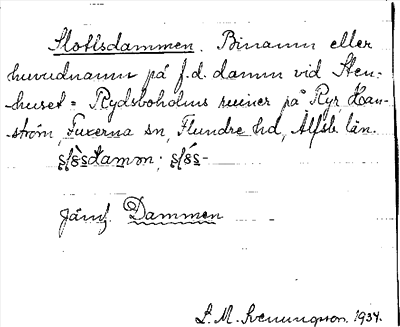 Slottsdammen. Binamn eller
huvudnamn på f.d. damm vid Sten-
huset = Rydsboholms ruiner på Ryr, Han-
ström, Fuxerna sn, Flundre hd, Älfsb. län.
Jämf. Dammen
L. M. Svenungsson. 1934.